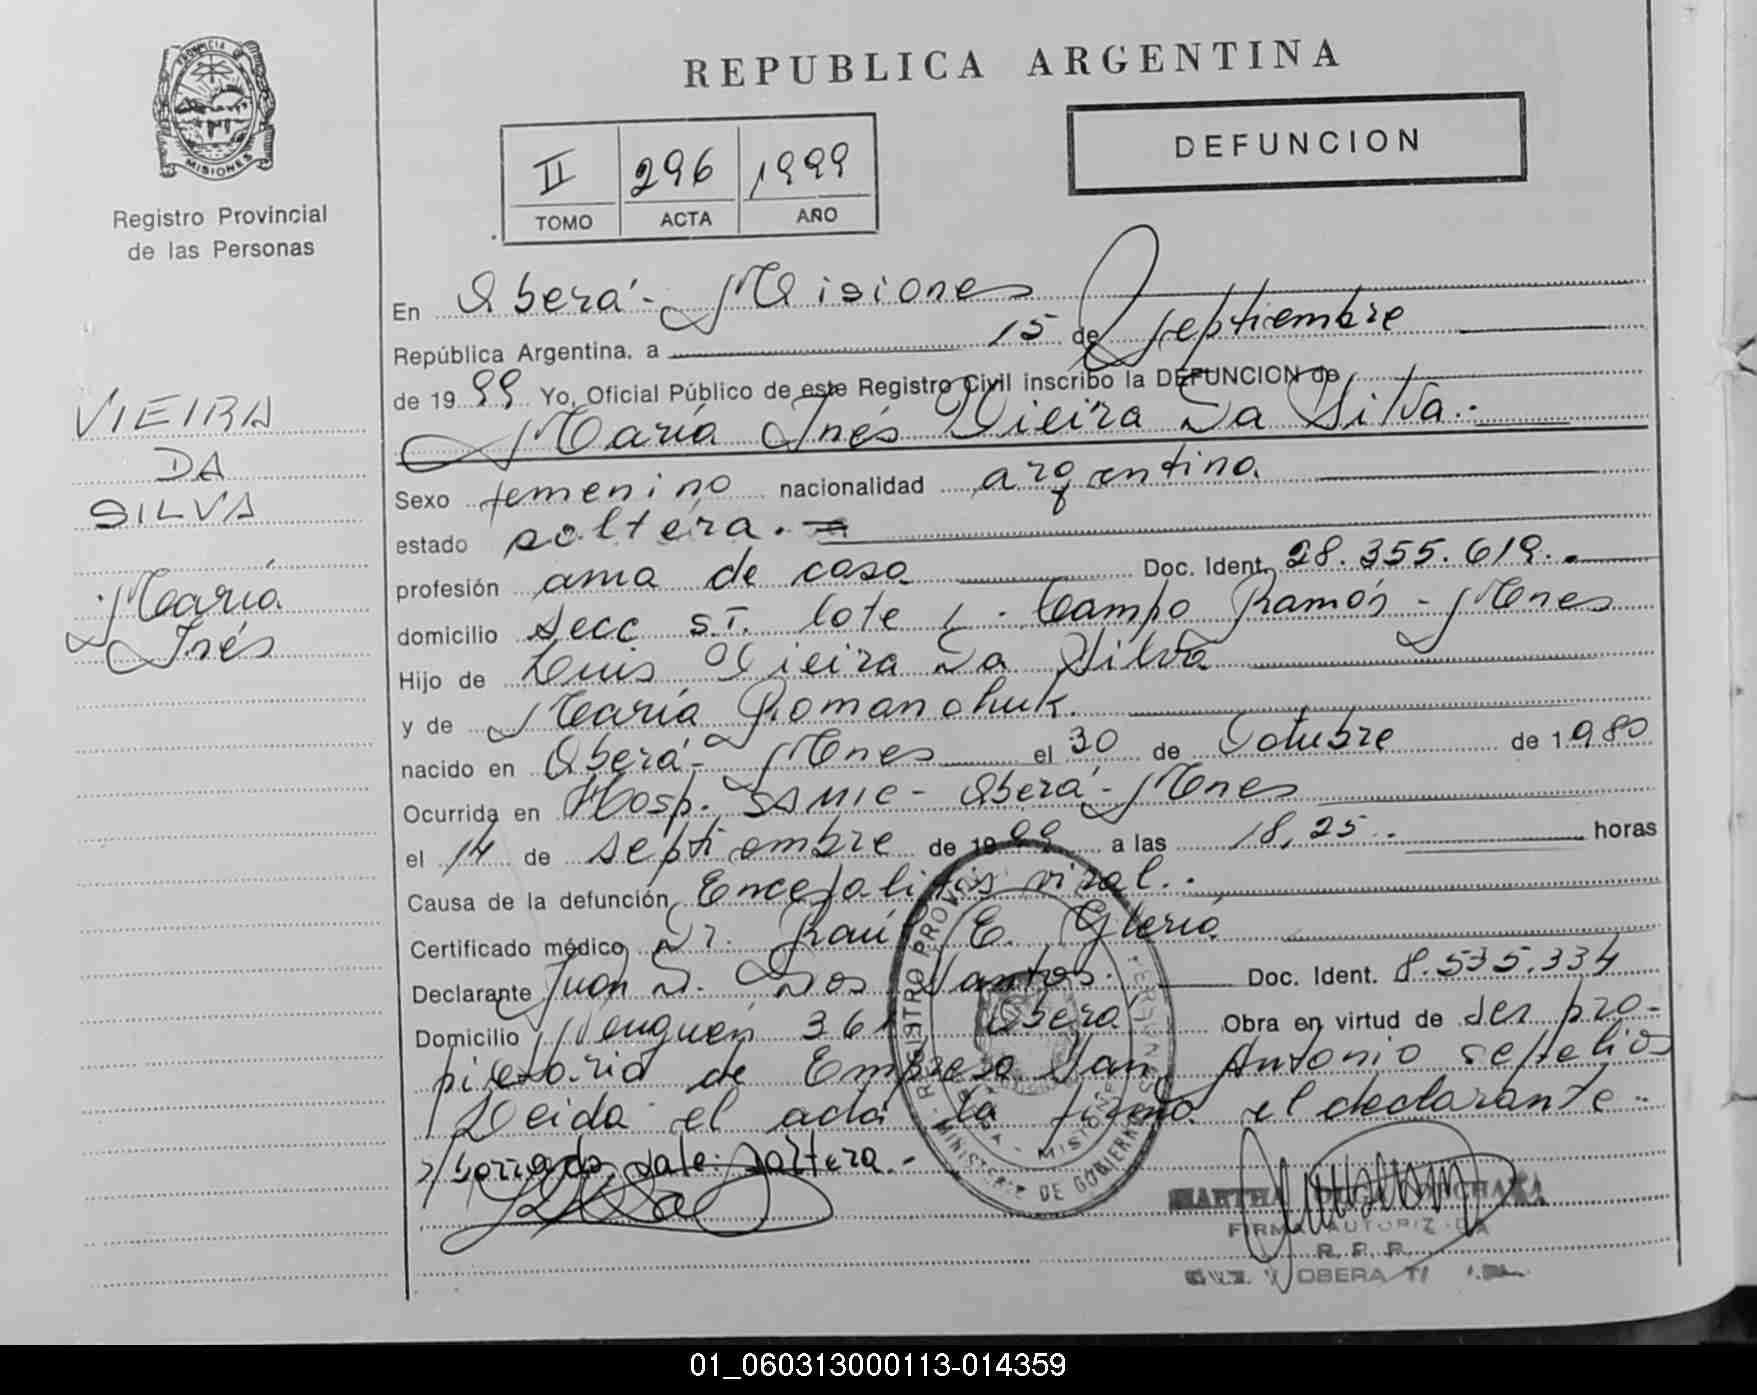 PROVINCIA DE
MISIONES
Registro Provincial
de las Personas
VIEIRA
DA
SILVA
María
Inés
REPUBLICA ARGENTINA
II 296 1999
TOMO ACTA AÑO
DEFUNCION
En Oberá - Misiones
República Argentina, a 15 de Septiembre
de 1999 Yo, Oficial Público de este Registro Civil inscribo la DEFUNCION de
María Inés Vieira Da Silva.-
Sexo femenino nacionalidad argentina
estado soltera.
profesión ama de casa Doc. Ident. 28.355.619.-
domicilio secc S.T. lote Campo Ramón - Mnes
Hijo de Luis Vieira Da Silva
y de María Romanchuk.
nacido en Oberá - Mnes el 30 de Octubre de 1980
Ocurrida en Hosp. SAMIC - Oberá - Mnes
el 14 de septiembre de 1999 a las 18,25.- horas
Causa de la defunción Encefalitis viral.-
Certificado médico Dr. Raúl E. Glería
Declarante Juan D. Dos Santos. Doc. Ident. 8.535.334
Domicilio 361 Oberá Obra en virtud de ser pro-
pietario de Empresa San Antonio sepelios
Leida el acta la firma el declarante.-
s/borrado vale: soltera.-
REGISTRO PROVINCIAL PERSONAS
MINISTERIO DE GOBIERNO
MISIONES
MARTHA
FIRMA AUTORIZADA
R. P. P.
OBERA
01_060313000113-014359